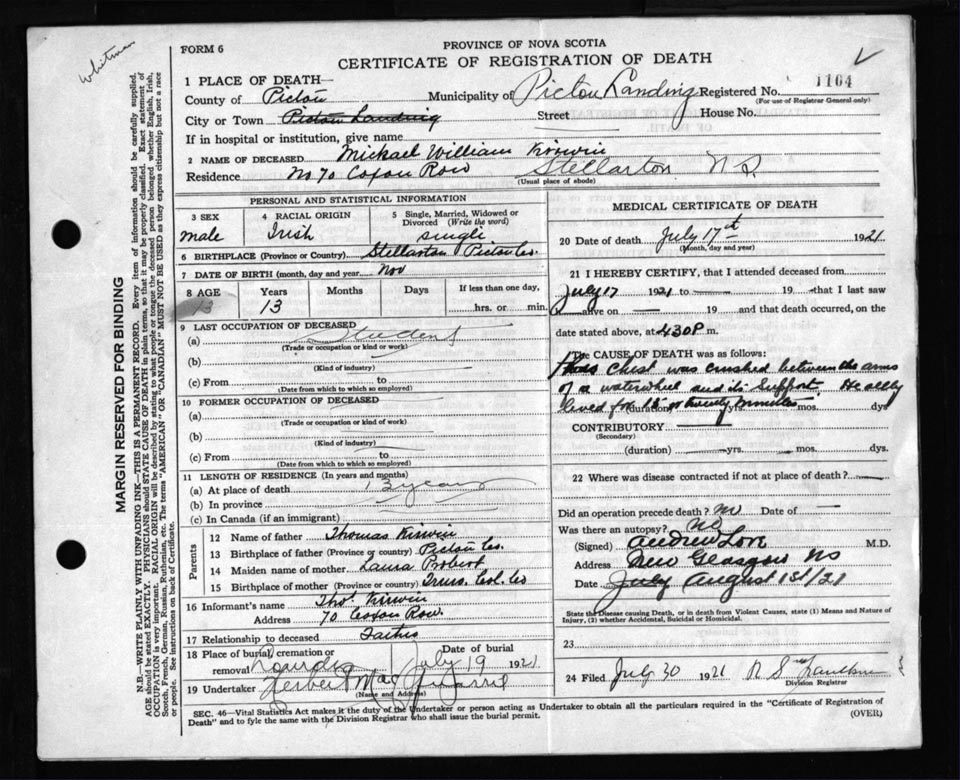 Whitman
FORM 6
PROVINCE OF NOVA SCOTIA
CERTIFICATE OF REGISTRATION OF DEATH
1164
1 PLACE OF DEATH—
County of Pictou Municipality of Pictou Landing Registered No.
(For use of Registrar General only)
City or Town Pictou Landing Street House No.
If in hospital or institution, give name
2 NAME OF DECEASED Mickael William Kirwin
Residence No 70 Coxon Row Stellarton N S.
(Usual place of abode)
PERSONAL AND STATISTICAL INFORMATION
3 SEX 4 RACIAL ORIGIN 5 Single, Married, Widowed or Divorced (Write the word)
male Irish single
6 BIRTHPLACE (Province or Country) Stellarton Pictou Co.
7 DATE OF BIRTH (month, day and year) Nov
8 AGE Years Months Days If less than one day,
13 13 hrs. or min.
9 LAST OCCUPATION OF DECEASED
(a) Student
(Trade or occupation or kind or work)
(b)
(Kind of industry)
(c) From to
(Date from which to which so employed)
10 FORMER OCCUPATION OF DECEASED
(a)
(Trade or occupation or kind of work)
(b)
(Kind of industry)
(c) From to
(Date from which to which so employed)
11 LENGTH OF RESIDENCE (In years and months)
(a) At place of death 13 years
(b) In province
(c) In Canada (if an immigrant)
Parents
12 Name of father Thomas Kirwin
13 Birthplace of father (Province or country) Pictou Co.
14 Maiden name of mother Laura
15 Birthplace of mother (Province or country)
16 Informant's name Thos. Kirwin
Address 70 Coxon Row.
17 Relationship to deceased Father
18 Place of burial, cremation or removal Date of burial
July 19 1921
19 Undertaker
(Name and Address)
MEDICAL CERTIFICATE OF DEATH
20 Date of death July 17th 1921
(Month, day and year)
21 I HEREBY CERTIFY, that I attended deceased from
July 17 1921 to — 19 — that I last saw
h alive on — 19 and that death occurred, on the
date stated above, at 430 P m.
The CAUSE OF DEATH was as follows:
Chest was crushed between the arms
of a waterwheel and its support. He only
lived for 15 or twenty minutes
(duration) yrs. mos. dys
CONTRIBUTORY
(Secondary)
(duration) yrs. mos. dys.
22 Where was disease contracted if not at place of death?
Did an operation precede death? No Date of —
Was there an autopsy? No
(Signed) Andrew Love M.D.
Address New Glasgow NS
Date July August 1st/21
State the Disease causing Death, or in death from Violent Causes, state (1) Means and Nature of
Injury, (2) whether Accidental, Suicidal or Homicidal.
23
24 Filed July 30 1921
Division Registrar
SEC. 46—Vital Statistics Act makes it the duty of the Undertaker or person acting as Undertaker to obtain all the particulars required in the "Certificate of Registration of
Death" and to fyle the same with the Division Registrar who shall issue the burial permit.
(OVER)
MARGIN RESERVED FOR BINDING
N.B.—WRITE PLAINLY WITH UNFADING INK—THIS IS A PERMANENT RECORD. Every item of information should be carefully supplied.
AGE should be stated EXACTLY. PHYSICIANS should STATE CAUSE OF DEATH in plain terms, so that it may be properly classified. Exact statement of
OCCUPATION is very important. RACIAL ORIGIN will be described by stating to what people or tongue the deceased person belonged whether English, Irish,
Scotch, French, German, Russian, Ruthenian, etc. The terms "AMERICAN" OR "CANADIAN" MUST NOT BE USED as they express citizenship but not a race
or people. See instructions on back of Certificate.